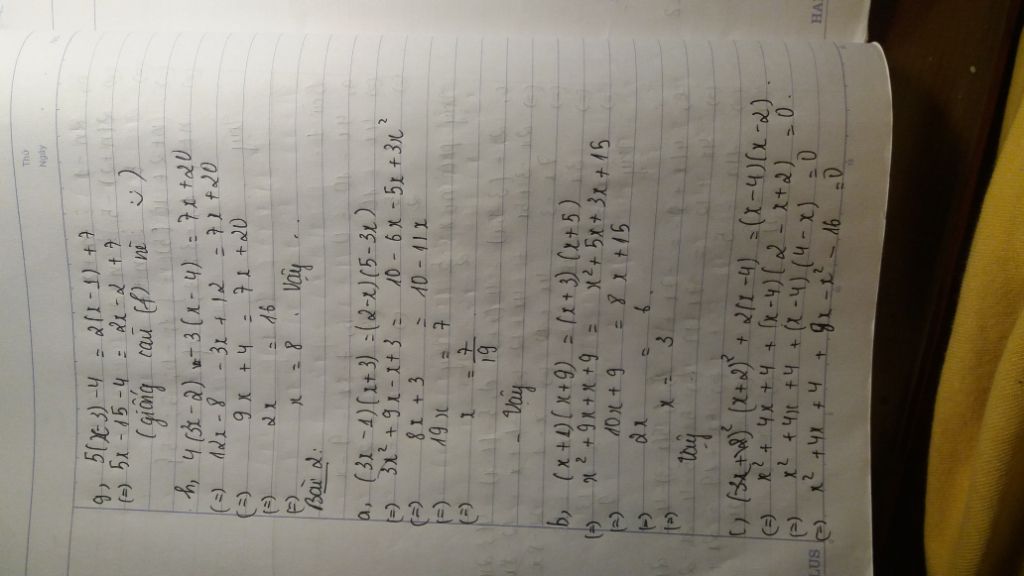 Thứ
Ngày
g, 5(x-3) - 4 = 2(x-1) + 7
(=) 5x - 15 - 4 = 2x - 2 + 7
(giống câu (f) nè :))
h, 4(3x-2) - 3(x-4) = 7x + 20
(=) 12x - 8 - 3x + 12 = 7x + 20
(=) 9x + 4 = 7x + 20
(=) 2x = 16
(=) x = 8 . Vậy .
Bài 2:
a, (3x-1)(x+3) = (2-x)(5-3x)
(=) 3x² + 9x - x + 3 = 10 - 6x - 5x + 3x²
(=) 8x + 3 = 10 - 11x
(=) 19x = 7
(=) x = 7/19
- Vậy
b, (x+1)(x+9) = (x+3)(x+5)
(=) x² + 9x + x + 9 = x² + 5x + 3x + 15
(=) 10x + 9 = 8x + 15
(=) 2x = 6
(=) x = 3
Vậy
c, (x+2)² + 2(x-4) = (x-4)(x-2).
(=) x² + 4x + 4 + (x-4)(2-x+2) = 0.
(=) x² + 4x + 4 + (x-4)(4-x) = 0
(=) x² + 4x + 4 + 8x - x² - 16 = 0
LUS
HA